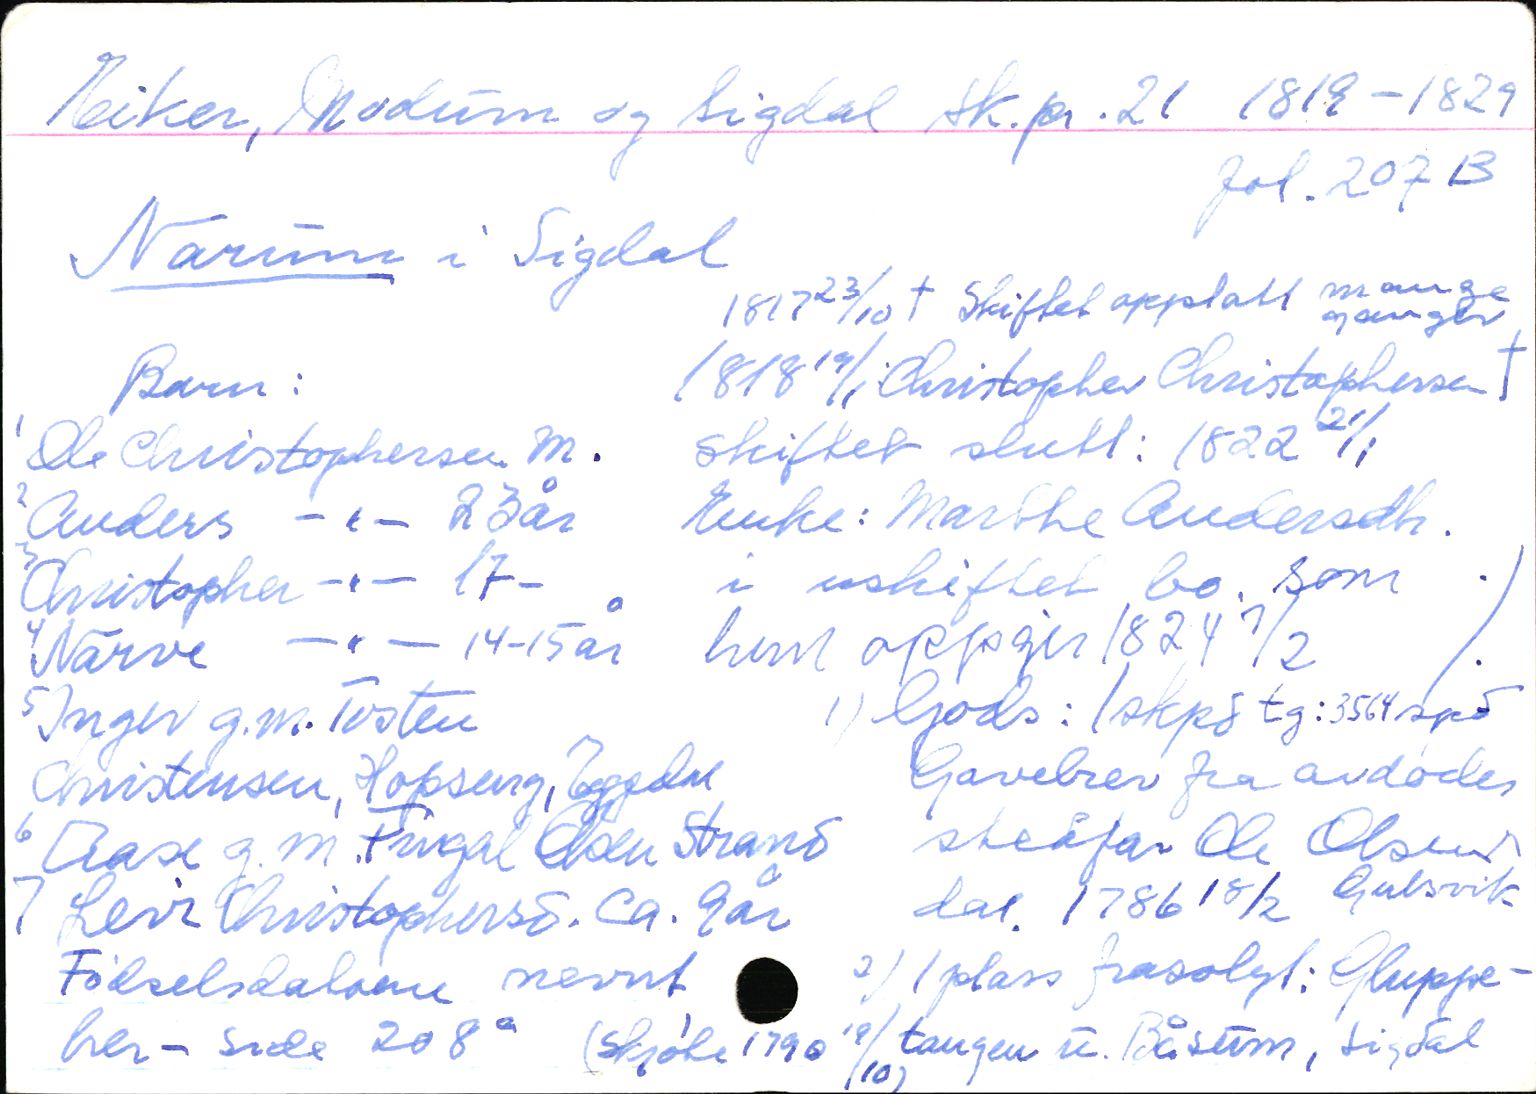 Eiker, Modum og Sigdal sk.pr. 21 1819-1829
fol. 207 B
Narum i Sigdal
1817 23/10 † Skiftet opptatt mange ganger
Barn: 1818 19/1 Christopher Christophersen †
1 Ole Christophersen M. skiftet slutt: 1822 21/1
2 Anders -"- 23 år Enke: Marthe Andersdtr.
3 Christopher -"- 17 - i uskiftet bo, som
4 Narve -"- 14-15 år hun oppgir 1824 7/2
5 Inger g.m. Tosten 1) Gods: 1 skpd tg: 3564 spd
Christensen, Hopseng, Eggedal Gavebrev fra avdødes
6 Aase g.m. Fingal Olsen Strand steäfar Ole Olsen
7 Levi Christophersd. ca. 9 år dat. 1786 18/2 Gulsvik
Fødselsdatoene nevnt 2) 1 plass frasolgt: Gluppe-
her - side 208a (skjøte 1790 19/10) tangen u. Båsum, Sigdal